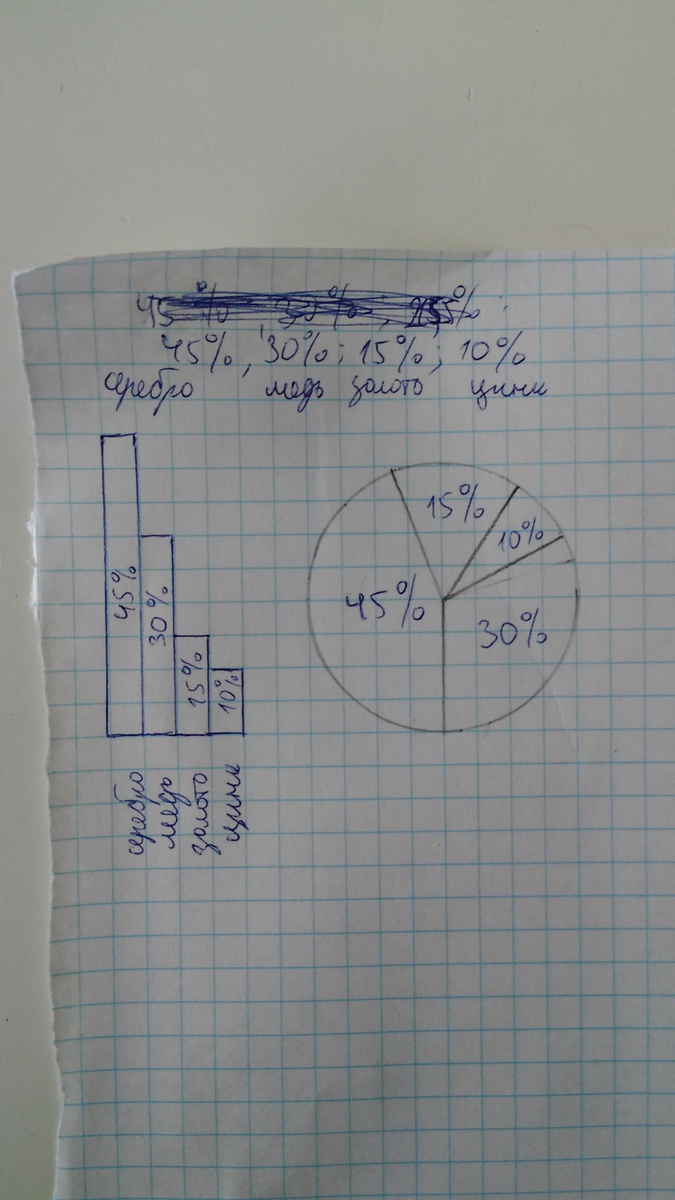 45%, 30%; 15%; 10%
серебро медь золото цинк
45%
30%
15%
10%
серебро
медь
золото
цинк
15%
10%
45%
30%